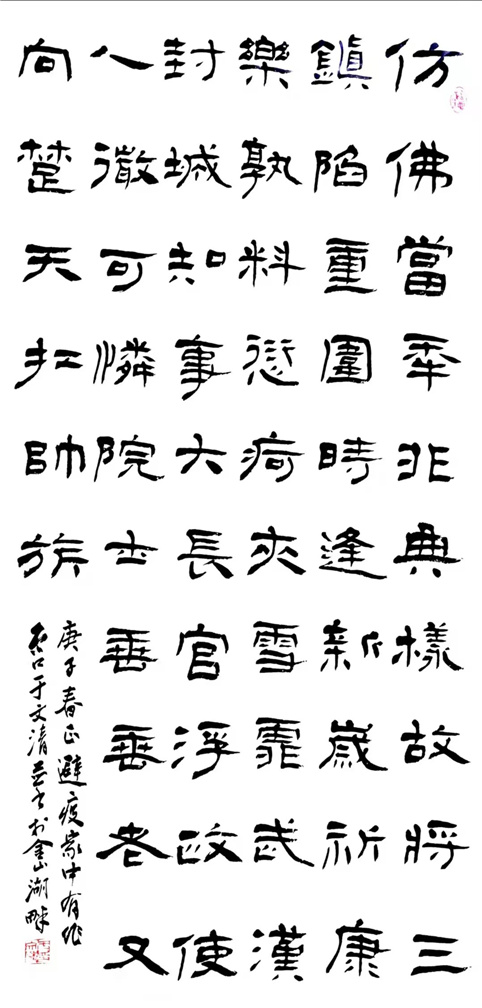 仿佛當年非典樣故將三
鎮陷重圍時逢新歲祈康
樂孰料愆疴夾雪霏武漢
封城知事大長官浮政使
人微可憐院士垂垂老又
向楚天扛帥旗
庚子春正避疫家中有作
口于文清並書於金山湖畔